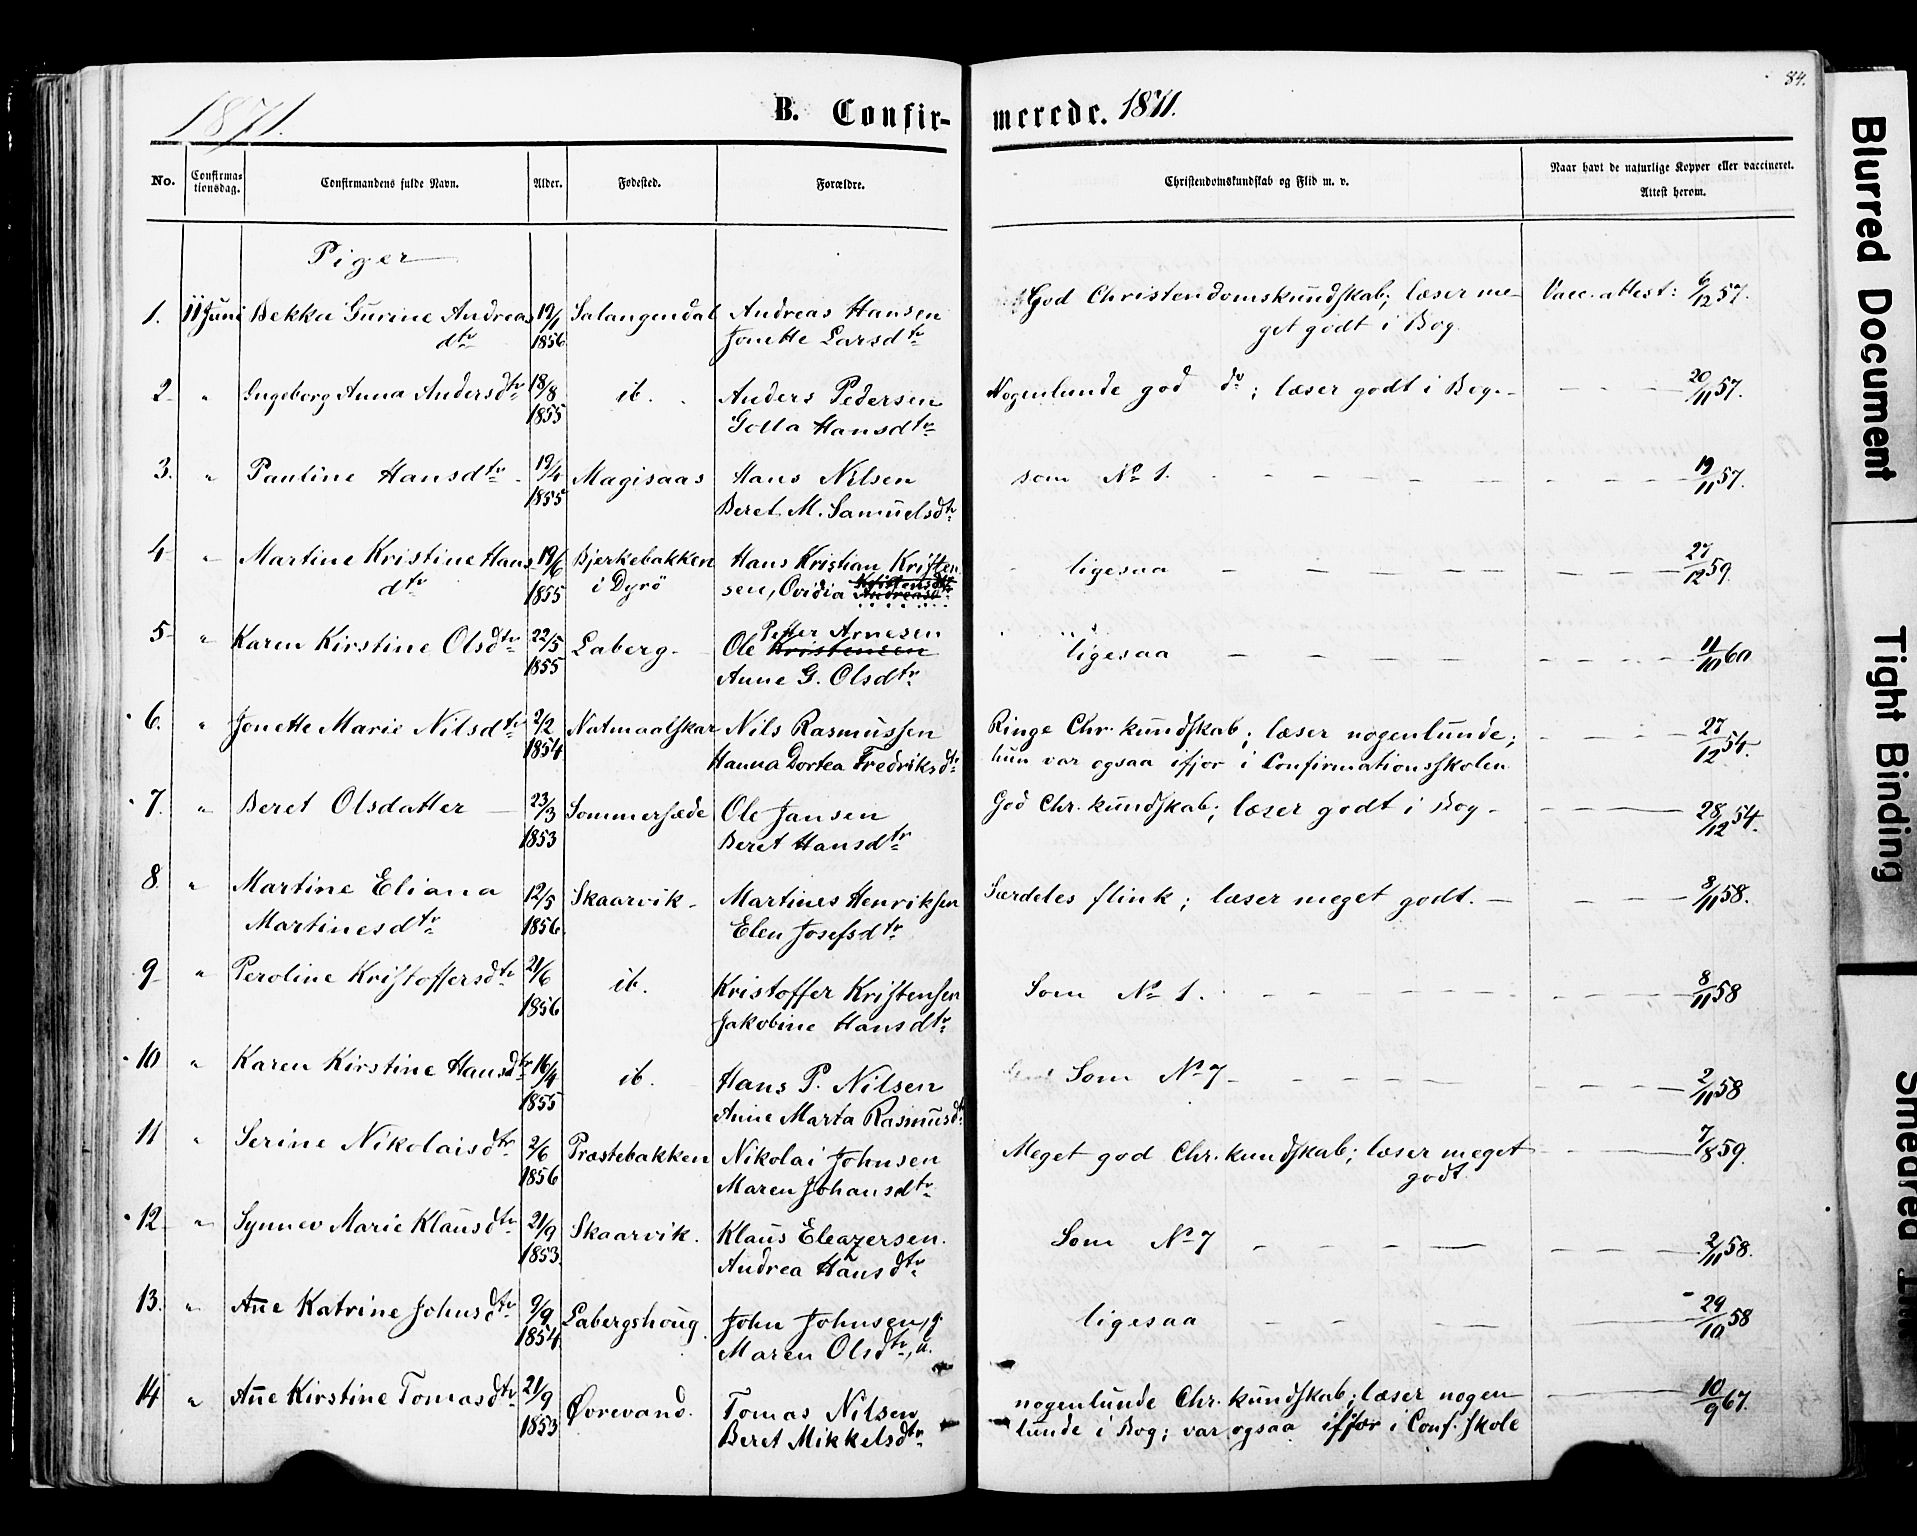 84.
1871. B. Confir- merede. 1871.
No. Confirma-tionsdag. Confirmandens fulde Navn. Alder. Fødested. Forældre. Christendomskundskab og Flid m. v. Naar havt de naturlige Kopper eller vaccineret. Attest herom.
Piger
1. 11 Juni Bekka Gurine Andreas 19/1 Salangendal Andreas Hansen God Christendomskundskab; læser me- Vacc. attest: 6/12 57.
dtr 1856 Jonette Larsdtr get godt i Bog.
2 " Ingeborg Anna Andersdtr 18/8 ib. Anders Pedersen Nogenlunde god do; læser godt i Bog. — 20/11 57.
1855 Golla Hansdtr
3. " Pauline Hansdtr 19/4 Magisaas Hans Nilsen som No 1. — 19/11 57.
1855 Beret M. Samuelsdtr
4 " Martine Kristine Hans 19/6 Bjerkebakken Hans Kristian Kristen ligesaa — 27/12 59.
dtr 1855 i Dyrö sen, Ovidia Kristensdtr Andreasdtr
5 " Karen Kirstine Olsdtr 22/5 Laberg Ole Petter Arnesen Kristensen ligesaa — 11/10 60
1855 Anne G. Olsdtr
6. " Jonette Marie Nilsdtr 2/2 Natmaalskar Nils Rasmussen Ringe Chr. kundskab; læser nogenlunde; — 27/12 54.
1854 Hanna Dortea Fredriksdtr hun var ogsaa ifjor i Confirmationsskolen
7. " Beret Olsdatter — 23/3 Sommersæde Ole Jansen God Chr. kundskab; læser godt i Bog — 28/12 54.
1853 Beret Hansdtr
8 " Martine Eliana 12/5 Skaarvik Martines Henriksen Særdeles flink; læser meget godt. — 8/11 58.
Martinesdtr 1856 Elen Josefsdtr
9 " Peroline Kristoffersdtr 21/6 ib. Kristoffer Kristensen Som No 1. — 8/11 58
1856 Jakobine Hansdtr
10 " Karen Kirstine Hansdtr 16/4 ib. Hans P. Nilsen Som No 7 — 2/11 58
1855 Anne Marta Rasmusdtr
11 " Serine Nikolaisdtr 2/6 Præstebakken Nikolai Johnsen Meget god Chr. kundskab; læser meget — 7/8 59.
1856 Maren Johansdtr godt.
12 " Synnev Marie Klausdtr 21/9 Skaarvik. Klaus Eleazersen. Som No 7 — 2/11 58.
1853 Andrea Hansdtr
13. " Ane Katrine Johnsdtr 9/9 Labergshoug John Johnsen, g. ligesaa — 29/10 58
1854 Maren Olsdtr, u.
14 " Ane Kirstine Tomasdtr 21/9 Øvrevand. Tomas Nilsen nogenlunde Chr. kundskab; læser nogen — 10/9 67.
1853 Beret Mikkelsdtr lunde i Bog; var ogsaa ifjor i Conf. skole
Blurred Document
Tight Binding
Smeared